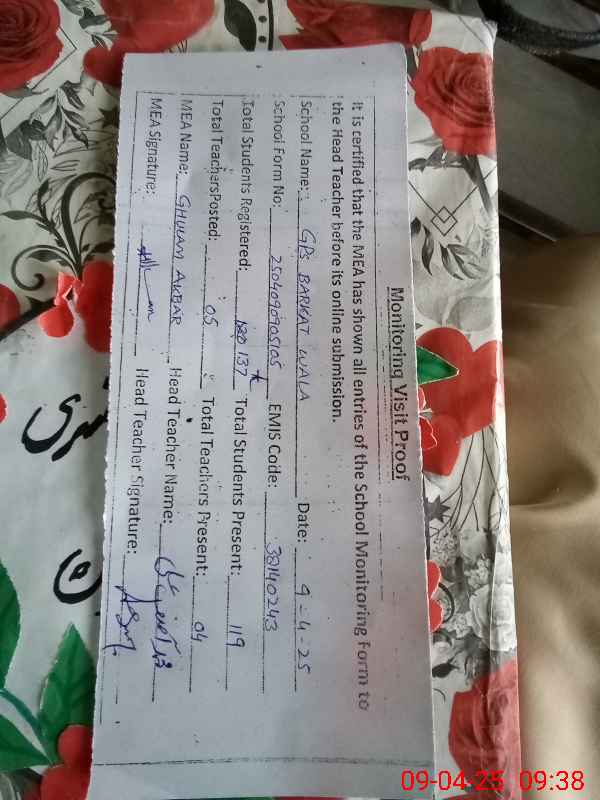 Monitoring Visit Proof
It is certified that the MEA has shown all entries of the School Monitoring Form to
the Head Teacher before its online submission.
School Name: GPS BARKAT WALA Date: 9-4-25
School Form No: 2504090905105 EMIS Code: 38140243
Total Students Registered: 137 Total Students Present: 119
Total Teachers Posted: 05 Total Teachers Present: 04
MEA Name: GHULAM AKBAR Head Teacher Name:
MEA Signature: Head Teacher Signature:
09-04-25 09:38